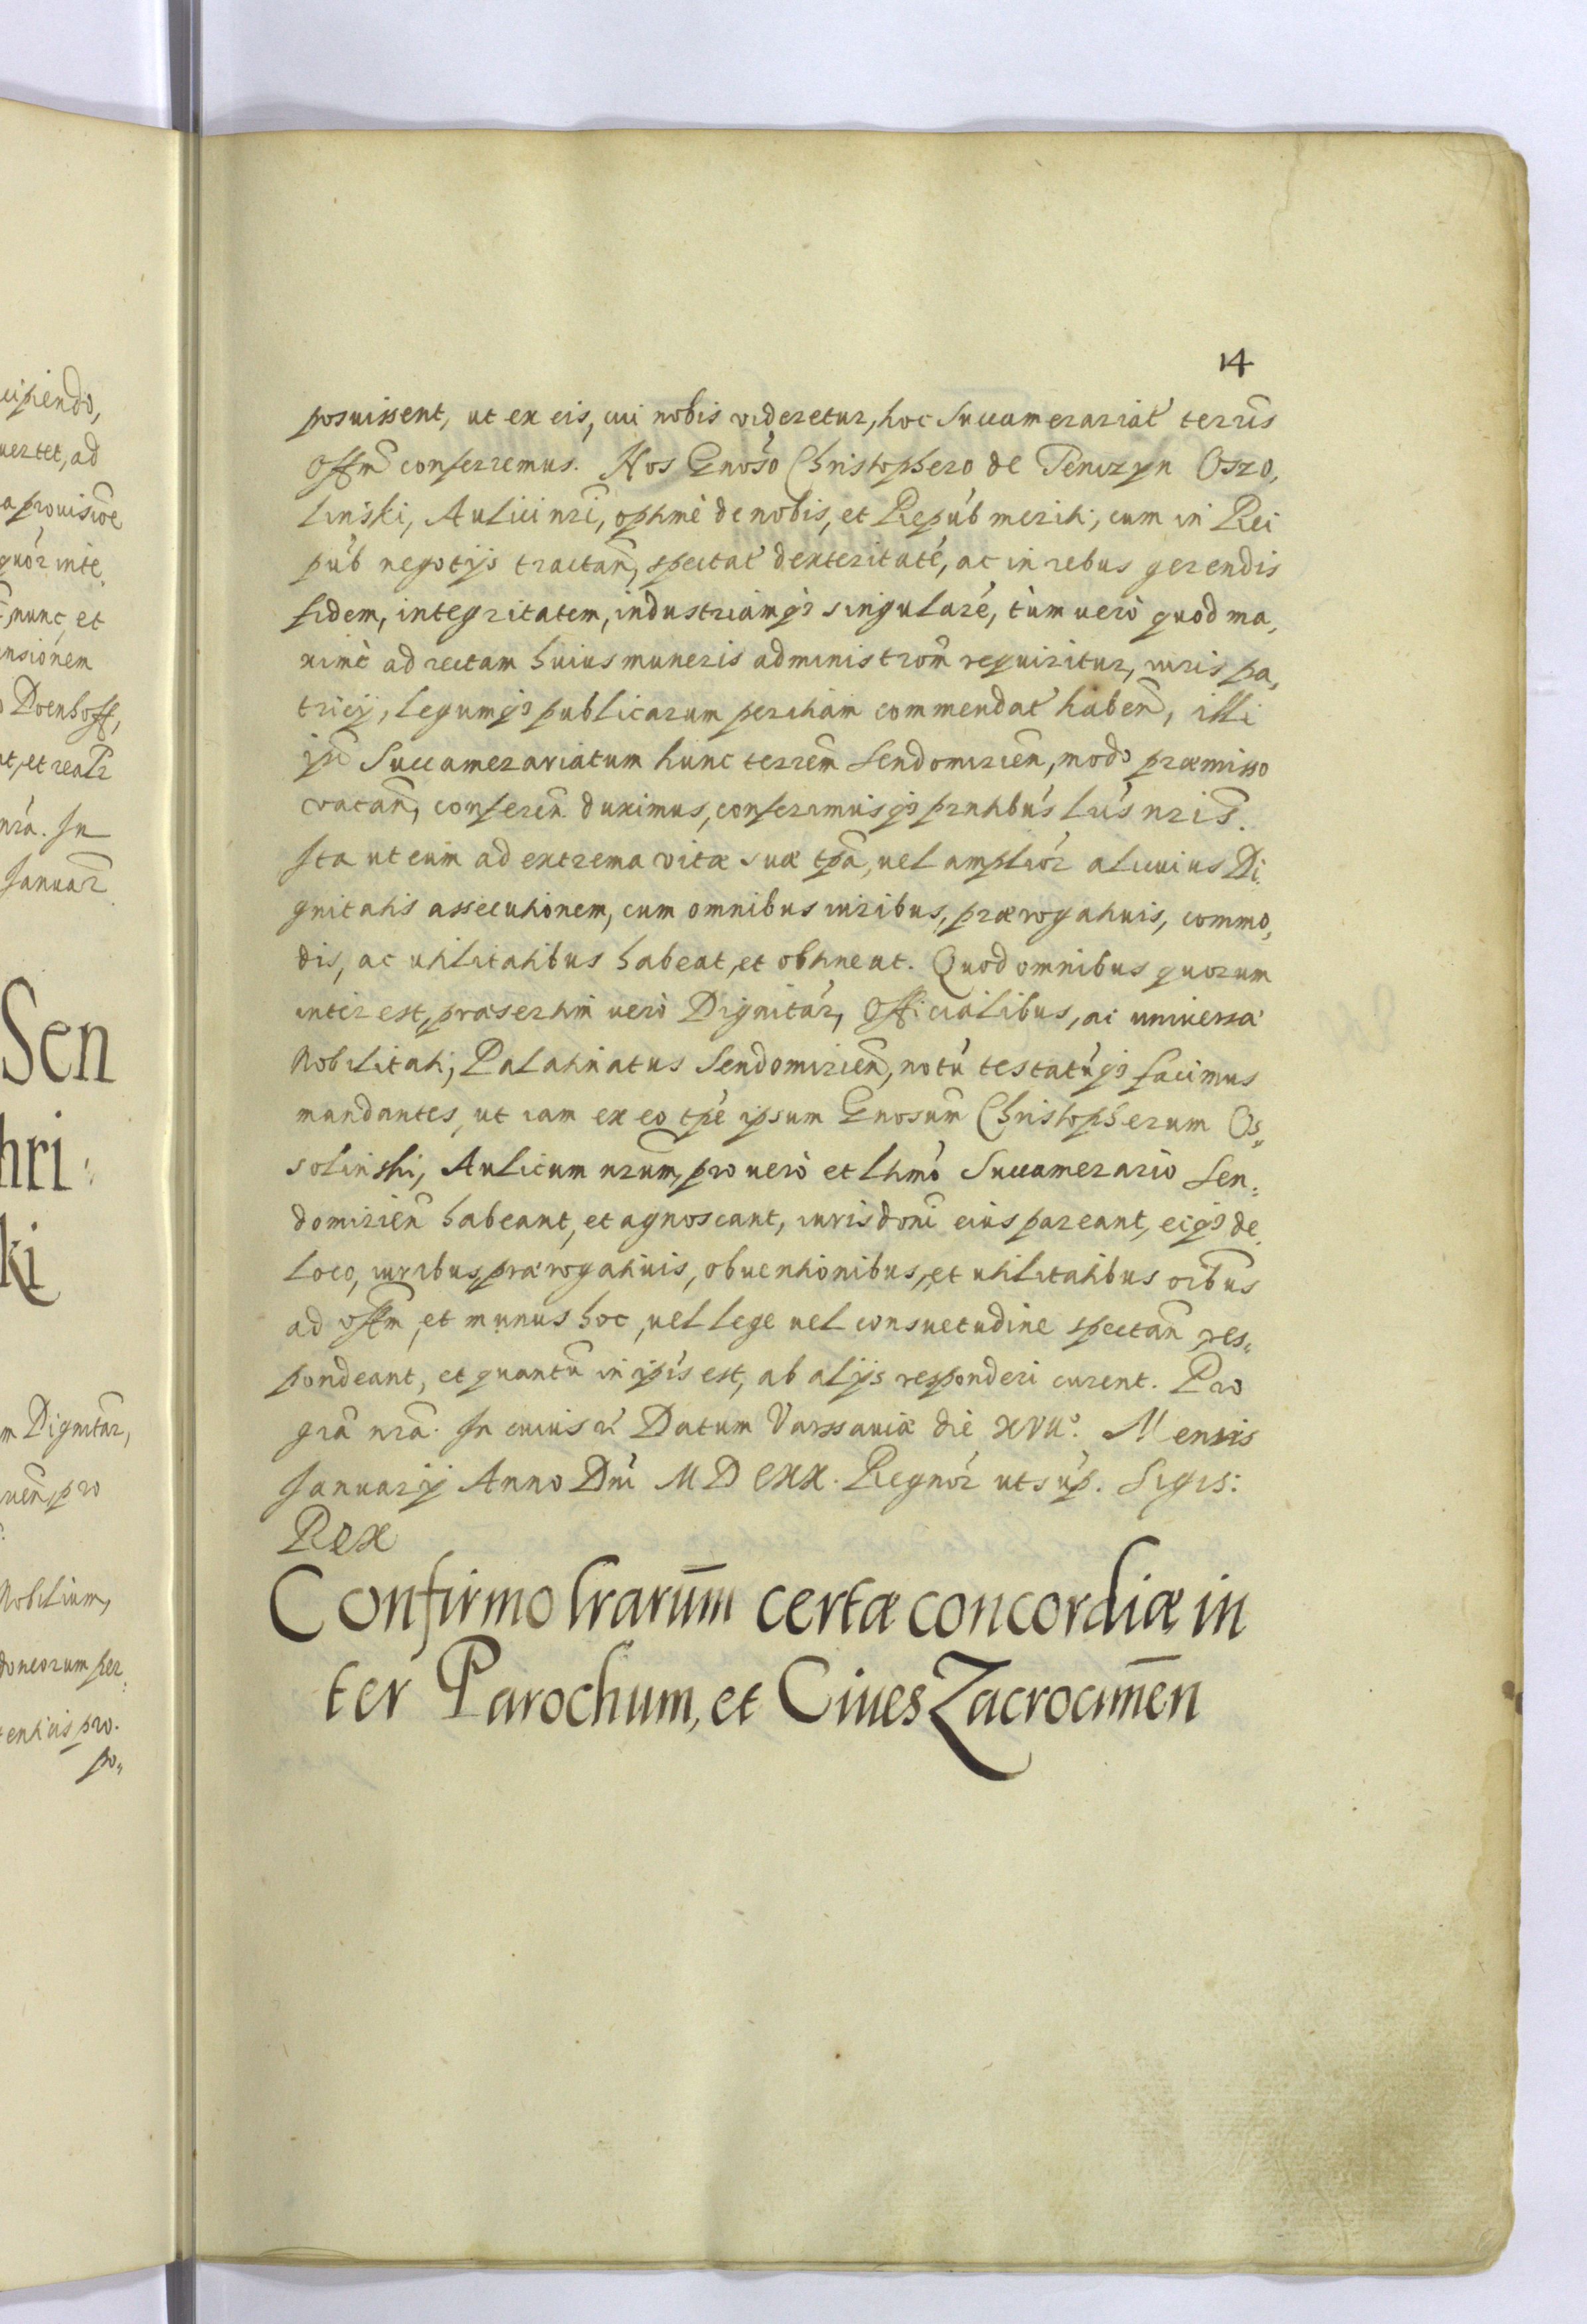 cipiendo,
uertet, ad
a prouisiõe
quór inte,
nunc, et
nsionem
Doenhoff,
at, et realr
nrá. In
Januar
Sen
hri:
ki
m Dignitar,
uen, pro
Nobilium,
doneorum per:
pro.
po„
14
posuissent, ut ex eis, cui nobis videretur, hoc Succamerariat́ terris
Offm̃ conferremus. Nos Gnoso Christophero de Tenczyn Oszo,
linski, Aulici nri, optimè de nobis, et Repúb meriti, cum in Rei
púb negotijs tractan̄, spectat́ dexteritaté, ac in rebus gerendis
fidem, integritatem, industriamq3 singularé, tùm uerò quod ma,
ximè ad rectam huius muneris administrom̃ requiritur, iuris pa,
tricij, legumq3 publicarum peritiam̃ commendat́ haben̄, illi
ipm̃ Succamerariatum hunc terrem̃ Sendomirien̄, modo præmisso
vacan̄, conferen̄ duximus, conferimusq3 prntibús lrís nris̃.
Ita ut eum ad extrema vitæ suæ tp̃a, uel ampliór alicuius Di,
gnitatis assecutionem, cum omnibus iuribus, prærogatiuis, commo,
dis, ac utilitatibus habeat, et obtineat. Quod omnibus quorum
interest, præsertim uerò Dignitár, Officialibus, ac uniuersæ
Nobilitati, Palatinatus Sendomirien̄, notú testatúq3 facimus
mandantes, ut iam ex eo tpé ipsum Gnosum̃ Christopherum Os„
solinski, Aulicum nrum̃, pro uerò et lt̃mó Succamerario Sen:
domirien̄ habeant, et agnoscant, iurisdoni ̃eius pareant, eiq3 de
loco, iuribus, prærogatiuis, obuentionibus, et utilitatibus oibús
ad offm̃, et munus hoc, uel lege uel consuetudine spectan̄ res„
pondeant, et quantú in ipís est, ab alijs responderi curent. Pro
grã nrã. In cuius rí Datum Varssauiæ die XVII°. Mensis
Januarij Anno Dni M D CXX. Regnór ut súp. Sigis:
Rex
Confirmo lrarum̃ certæ concordiæ in
ter Parochum, et Ciues Zacrocimen̄